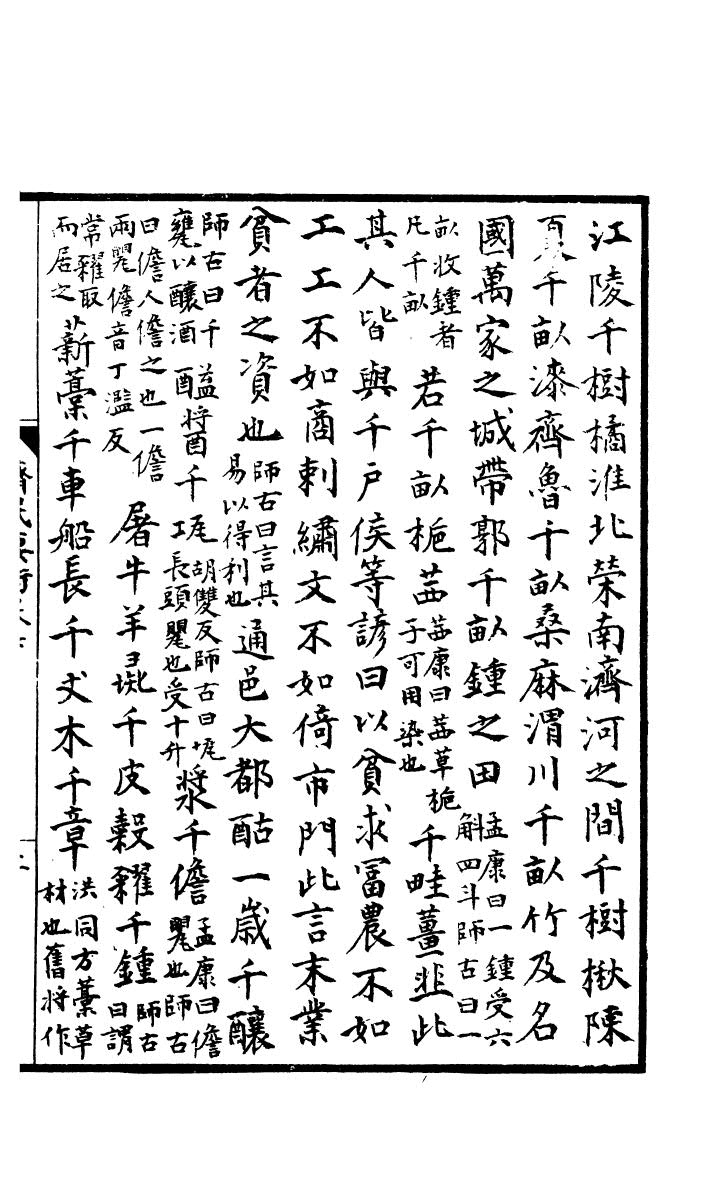 江陵千樹橘淮北榮南濟河之間千樹楸陳
夏千畝漆齊魯千畝桑麻渭川千畝竹及名
國萬家之城帶郭千畝鍾之田孟康曰一鍾受六斛四斗師古曰一
畝收鍾者凡千畝若千畝梔茜茜康曰茜草梔子可用染也千畦薑韭此
其人皆與千戶侯等諺曰以貧求冨農不如
工工不如商刺繡文不如倚市門此言末業
貧者之資也師古曰言其易以得利也通邑大都酤一歲千釀
師古曰千甕以釀酒醯醬千瓨胡雙反師古曰瓨長頭甖也受十升漿千儋孟康曰儋甖也師古
曰儋人儋之也一儋兩甖儋音丁濫反屠牛羊彘千皮穀糴千鍾師古曰謂
常糴取而居之薪藁千車船長千丈木千章洪同方藁草材也舊將作
齊民要術